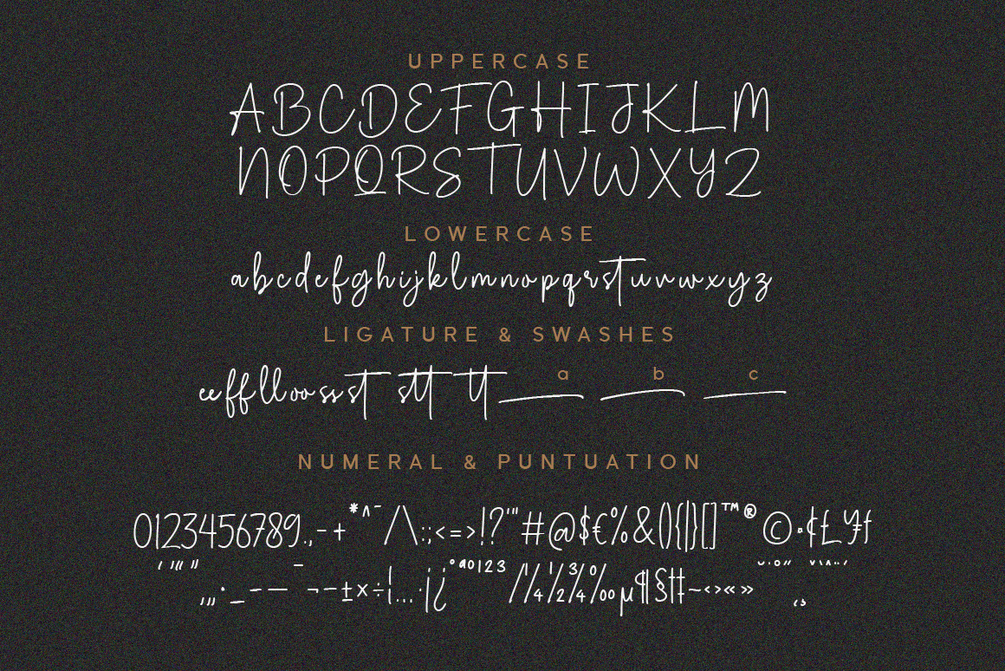 UPPERCASE
ABCDEFGHIJKLM
NOPQRSTUVWXYZ
LOWERCASE
abcdefghijklmnopqrstuvwxyz
LIGATURE & SWASHES
a b c
ee ff ll oo ss st stt tt
NUMERAL & PUNTUATION
0123456789.,-+*^¯/\:;<=>!?'"#@$€%&(){|}[]™®©•¢£¥ƒ
‚„…·_–—¯¬-±×÷¦…·¡¿°ªº123/¼½¾‰µ¶§†‡~‹›«»